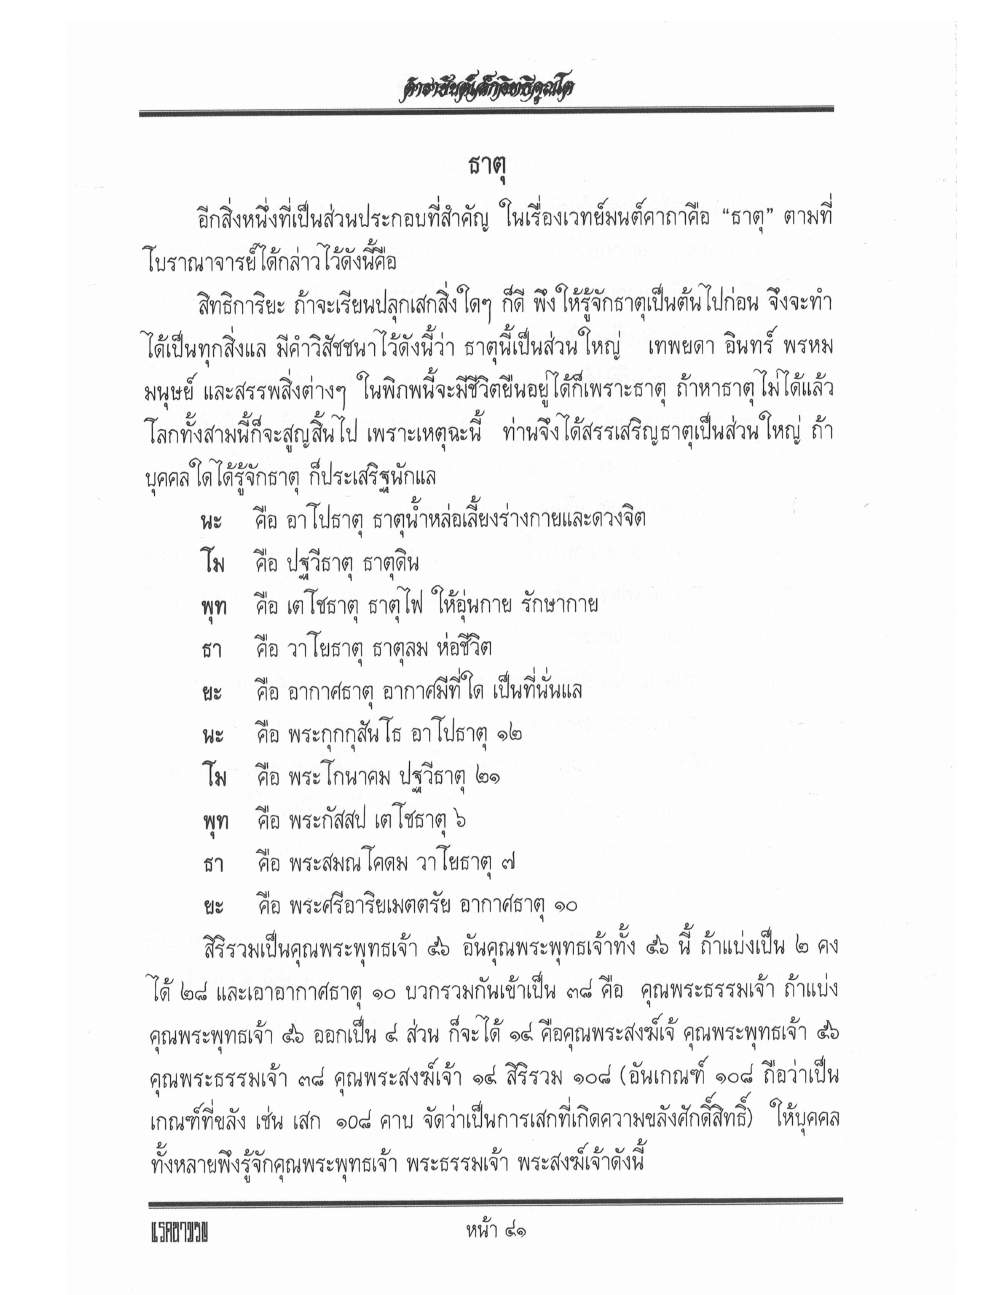 ธาตุ
อีกสิ่งหนึ่งที่เป็นส่วนประกอบที่สำคัญ ในเรื่องเวทย์มนต์คาถาคือ “ธาตุ” ตามที่
โบราณาจารย์ได้กล่าวไว้ดังนี้คือ
สิทธิการิยะ ถ้าจะเรียนปลุกเสกสิ่งใดๆ ก็ดี พึงให้รู้จักธาตุเป็นต้นไปก่อน จึงจะทำ
ได้เป็นทุกสิ่งแล มีคำวิสัชชนาไว้ดังนี้ว่า ธาตุนี้เป็นส่วนใหญ่ เทพยดา อินทร์ พรหม
มนุษย์ และสรรพสิ่งต่างๆ ในพิภพนี้จะมีชีวิตยืนอยู่ได้ก็เพราะธาตุ ถ้าหาธาตุไม่ได้แล้ว
โลกทั้งสามนี้ก็จะสูญสิ้นไป เพราะเหตุฉะนี้ ท่านจึงได้สรรเสริญธาตุเป็นส่วนใหญ่ ถ้า
บุคคลใดได้รู้จักธาตุ ก็ประเสริฐนักแล
นะ คือ อาโปธาตุ ธาตุน้ำหล่อเลี้ยงร่างกายและดวงจิต
โม คือ ปฐวีธาตุ ธาตุดิน
พุท คือ เตโชธาตุ ธาตุไฟ ให้อุ่นกาย รักษากาย
ธา คือ วาโยธาตุ ธาตุลม ห่อชีวิต
ยะ คือ อากาศธาตุ อากาศมีที่ใด เป็นที่นั่นแล
นะ คือ พระกุกกุสันโธ อาโปธาตุ ๑๒
โม คือ พระโกนาคม ปฐวีธาตุ ๒๑
พุท คือ พระกัสสป เตโชธาตุ ๖
ธา คือ พระสมณโคดม วาโยธาตุ ๗
ยะ คือ พระศรีอาริยเมตตรัย อากาศธาตุ ๑๐
สิริรวมเป็นคุณพระพุทธเจ้า ๕๖ อันคุณพระพุทธเจ้าทั้ง ๕๖ นี้ ถ้าแบ่งเป็น ๒ คง
ได้ ๒๘ และเอาอากาศธาตุ ๑๐ บวกรวมกันเข้าเป็น ๓๘ คือ คุณพระธรรมเจ้า ถ้าแบ่ง
คุณพระพุทธเจ้า ๕๖ ออกเป็น ๔ ส่วน ก็จะได้ ๑๔ คือคุณพระสงฆ์เจ้ คุณพระพุทธเจ้า ๕๖
คุณพระธรรมเจ้า ๓๘ คุณพระสงฆ์เจ้า ๑๔ สิริรวม ๑๐๘ (อันเกณฑ์ ๑๐๘ ถือว่าเป็น
เกณฑ์ที่ขลัง เช่น เสก ๑๐๘ คาบ จัดว่าเป็นการเสกที่เกิดความขลังศักดิ์สิทธิ์) ให้บุคคล
ทั้งหลายพึงรู้จักคุณพระพุทธเจ้า พระธรรมเจ้า พระสงฆ์เจ้าดังนี้
หน้า ๔๑